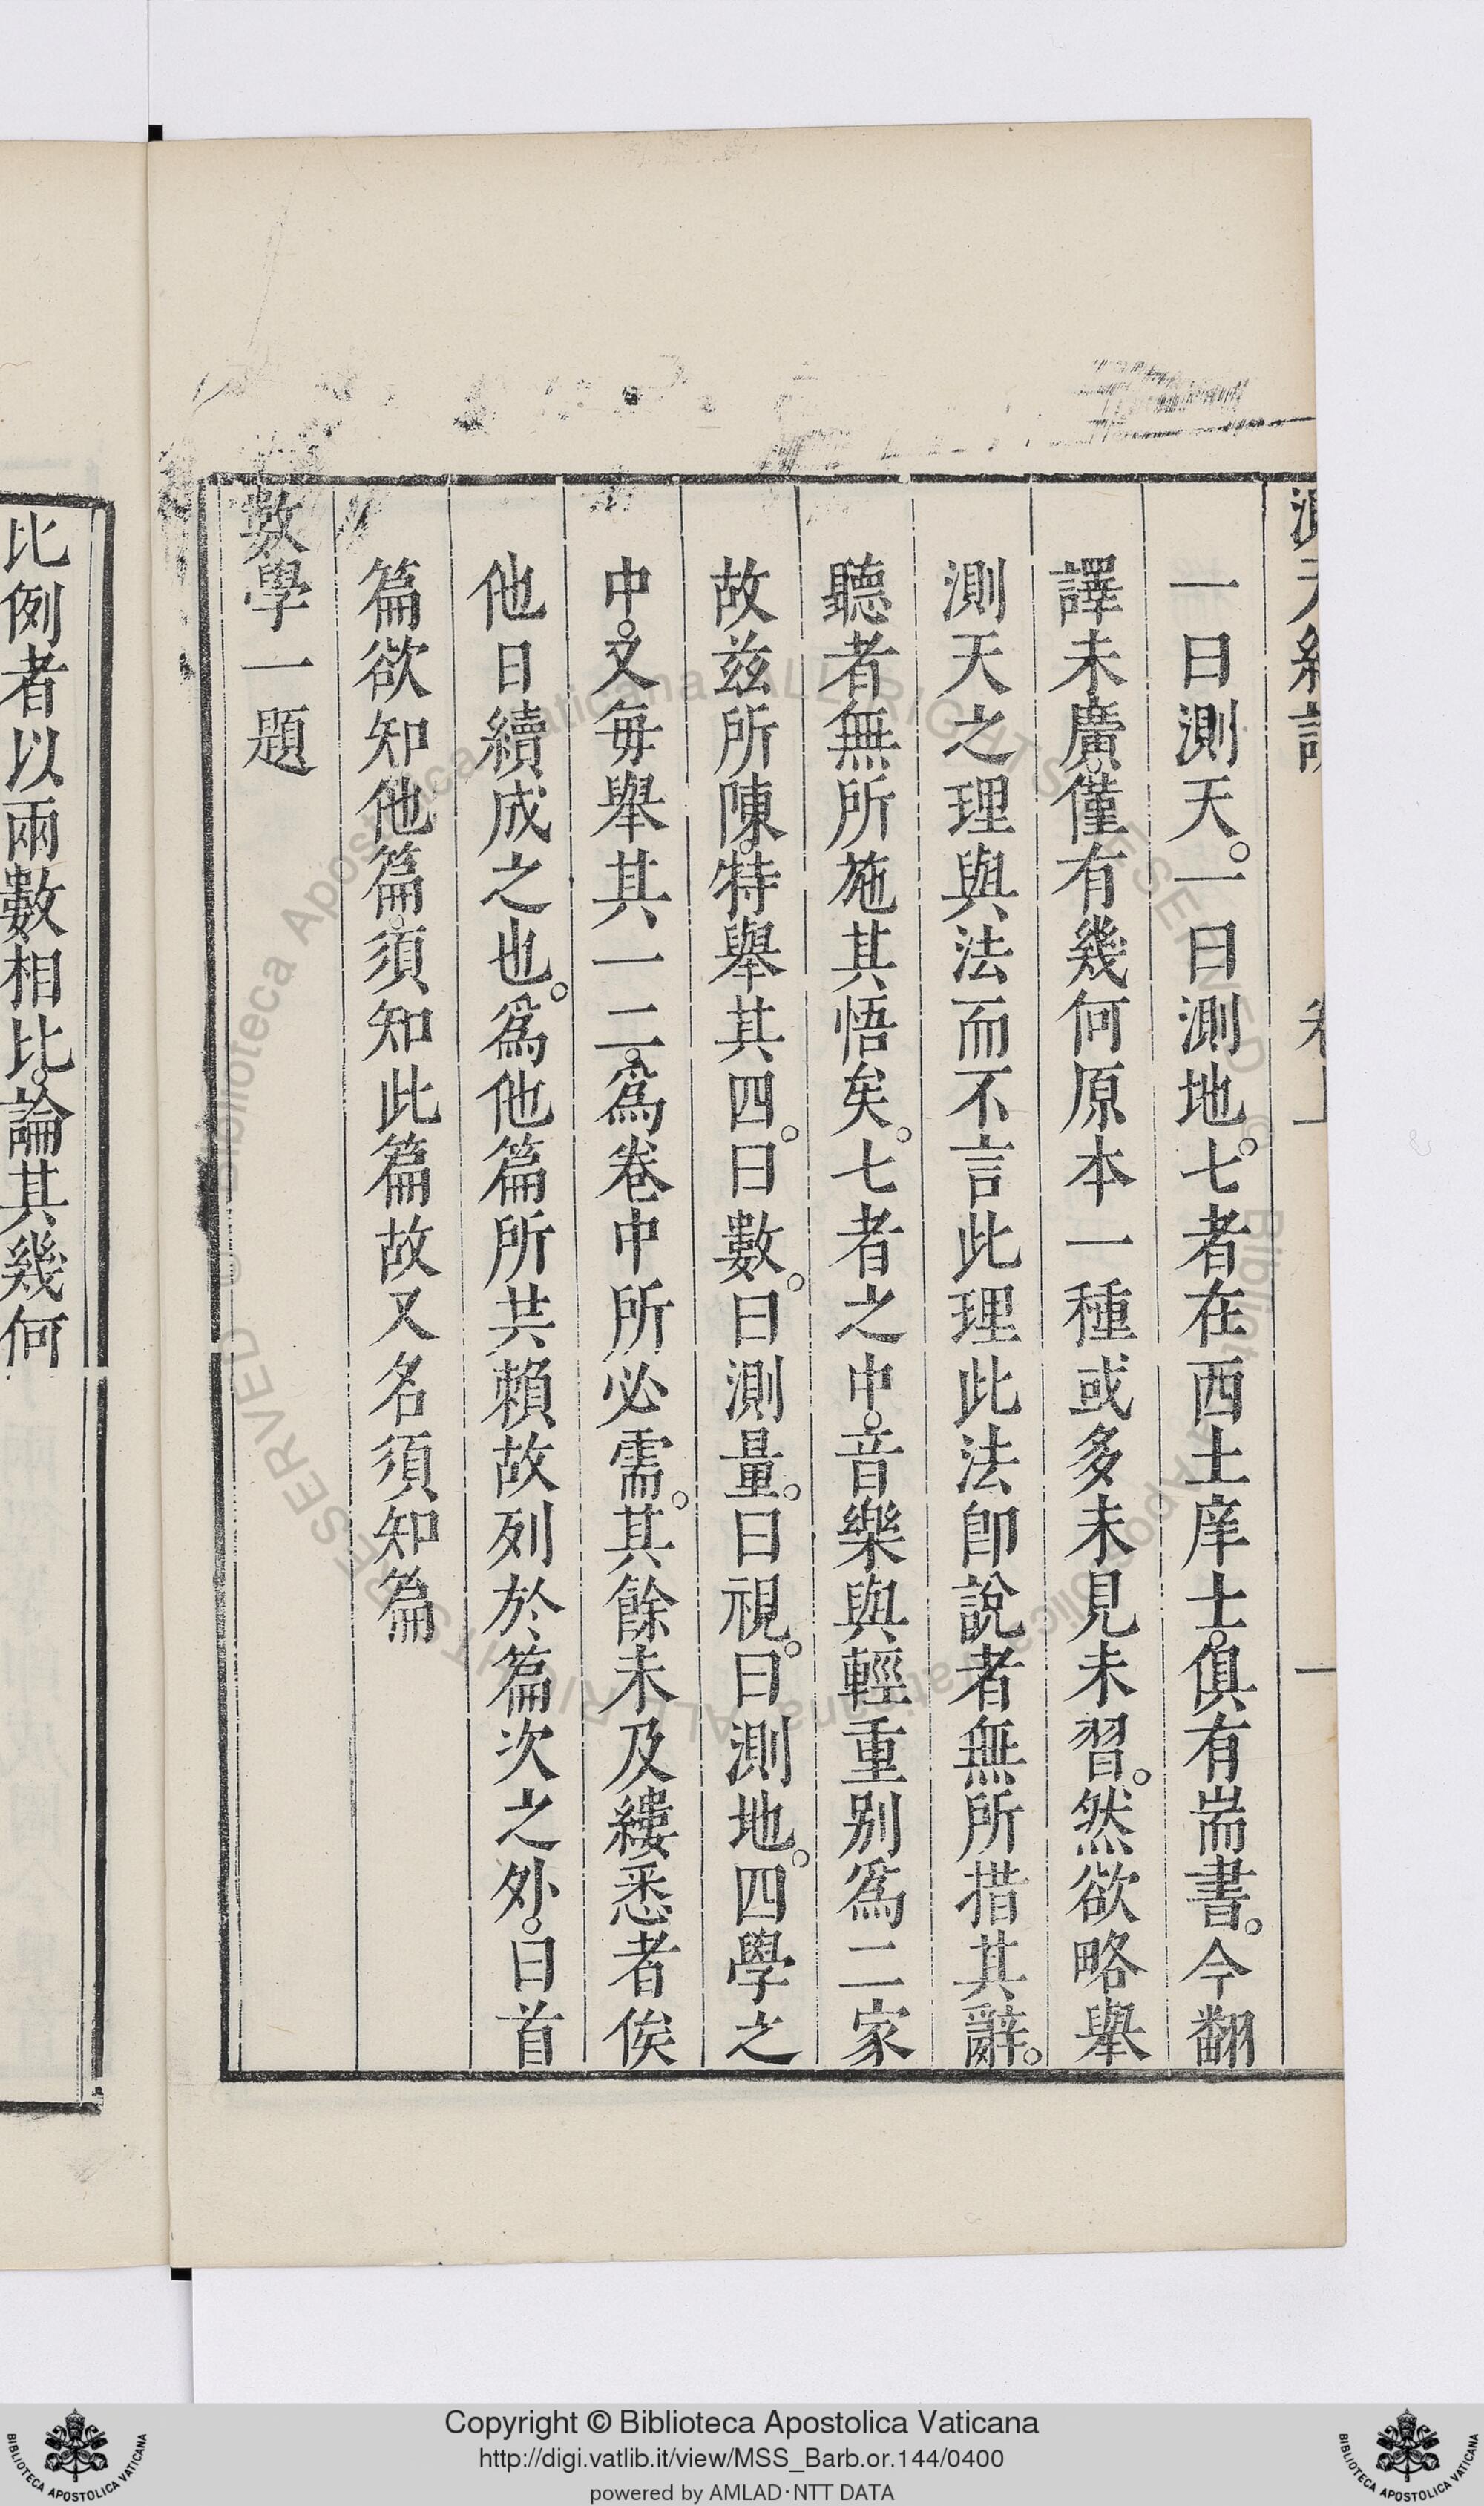 一曰測天。一曰測地。七者在西土庠士。俱有耑書。今翻
譯未廣。僅有幾何原本一種或多未見未習。然欲略舉
測天之理與法而不言此理此法卽說者無所措其辭。
聽者無所施其悟矣。七者之中。音樂與輕重别爲二家
故兹所陳。特舉其四。曰數。曰測量。曰視。曰測地。四學之
中。又每舉其一二。爲卷中所必需。其餘未及縷悉者俟
他日續成之也。爲他篇所共賴故列於篇次之外。曰首
篇欲知他篇。須知此篇故又名須知篇
數學一題
比例者以兩數相比。論其幾何
Copyright © Biblioteca Apostolica Vaticana
http://digi.vatlib.it/view/MSS_Barb.or.144/0400
powered by AMLAD·NTT DATA
BIBLIOTECA APOSTOLICA VATICANA
BIBLIOTECA APOSTOLICA VATICANA